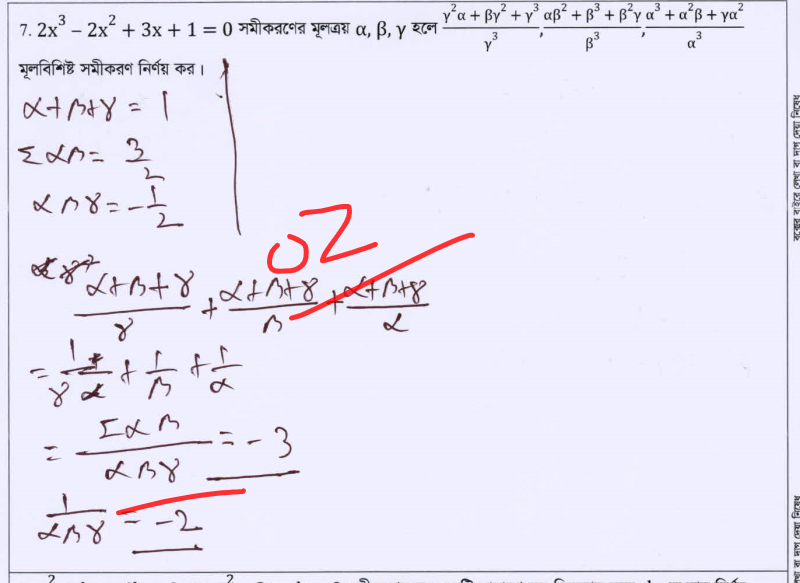 7. 2x³ − 2x² + 3x + 1 = 0 সমীকরণের মূলত্রয় α, β, γ হলে (γ²α + βγ² + γ³)/γ³, (αβ² + β³ + β²γ)/β³, (α³ + α²β + γα²)/α³
মূলবিশিষ্ট সমীকরণ নির্ণয় কর।
α+β+γ = 1
Σαβ = 3/2
αβγ = -1/2
02
(α+β+γ)/γ + (α+β+γ)/β + (α+β+γ)/α
= 1/γ + 1/β + 1/α
= Σαβ/αβγ = -3
1/αβγ = -2